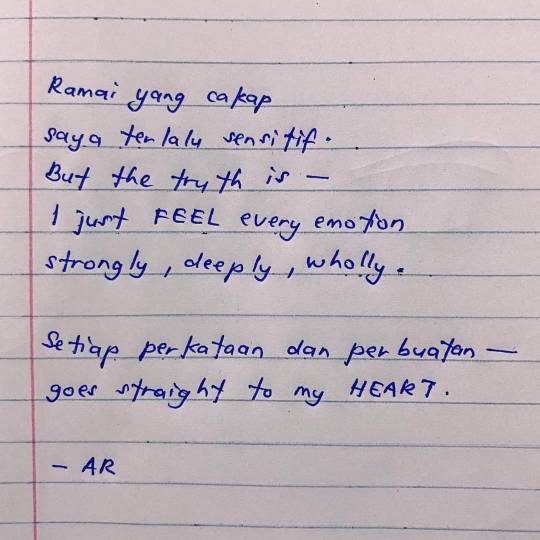 Ramai yang cakap
saya terlalu sensitif.
But the truth is —
I just FEEL every emotion
strongly, deeply, wholly.
Setiap perkataan dan perbuatan —
goes straight to my HEART.
- AR